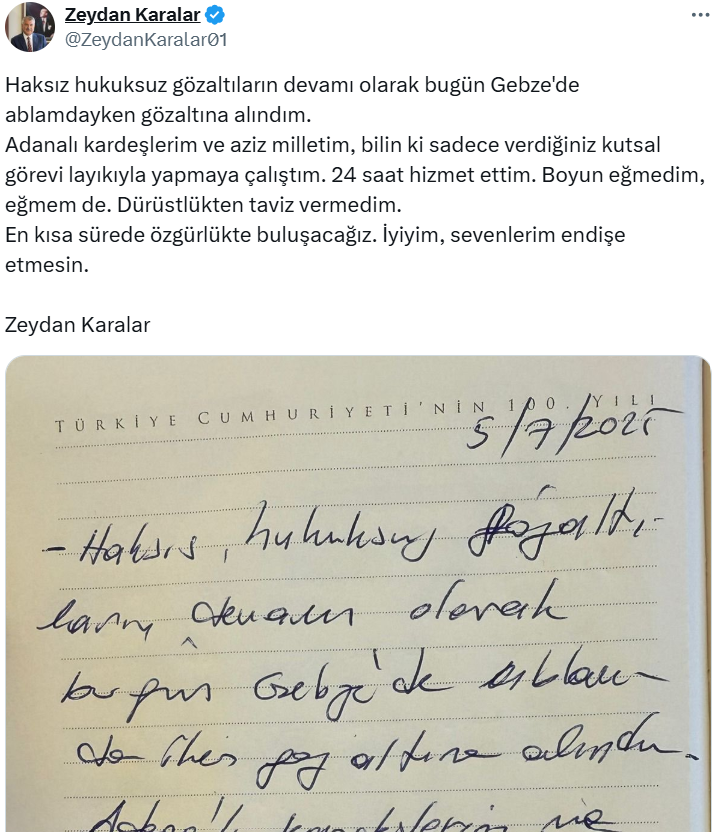 Zeydan Karalar
@ZeydanKaralar01
Haksız hukuksuz gözaltıların devamı olarak bugün Gebze'de
ablamdayken gözaltına alındım.
Adanalı kardeşlerim ve aziz milletim, bilin ki sadece verdiğiniz kutsal
görevi layıkıyla yapmaya çalıştım. 24 saat hizmet ettim. Boyun eğmedim,
eğmem de. Dürüstlükten taviz vermedim.
En kısa sürede özgürlükte buluşacağız. İyiyim, sevenlerim endişe
etmesin.
Zeydan Karalar
TÜRKİYE CUMHURİYETİ'NİN 100. YILI
5/7/2025
- Haksız, hukuksuz gözaltı-
ların devamı olarak
bugün Gebze'de ablam-
da iken göz altına alındım.
kardeşlerim ve